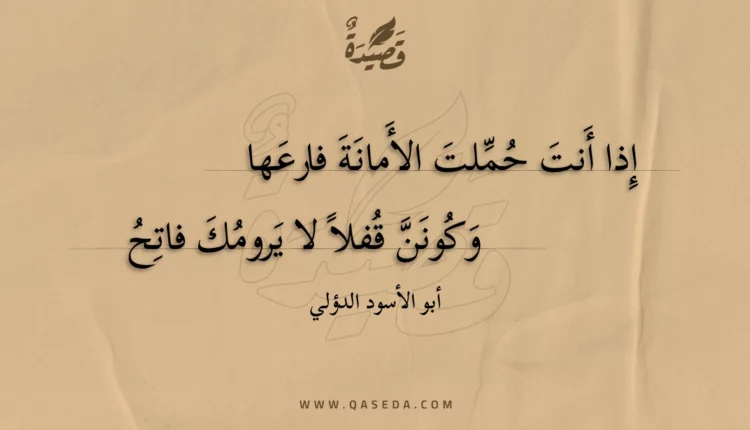 قَصِيدَةٌ
إِذا أَنتَ حُمِّلتَ الأَمانَةَ فارعَها
وَكُونَنَّ قُفلاً لا يَرومُكَ فاتِحُ
أبو الأسود الدؤلي
WWW.QASEDA.COM